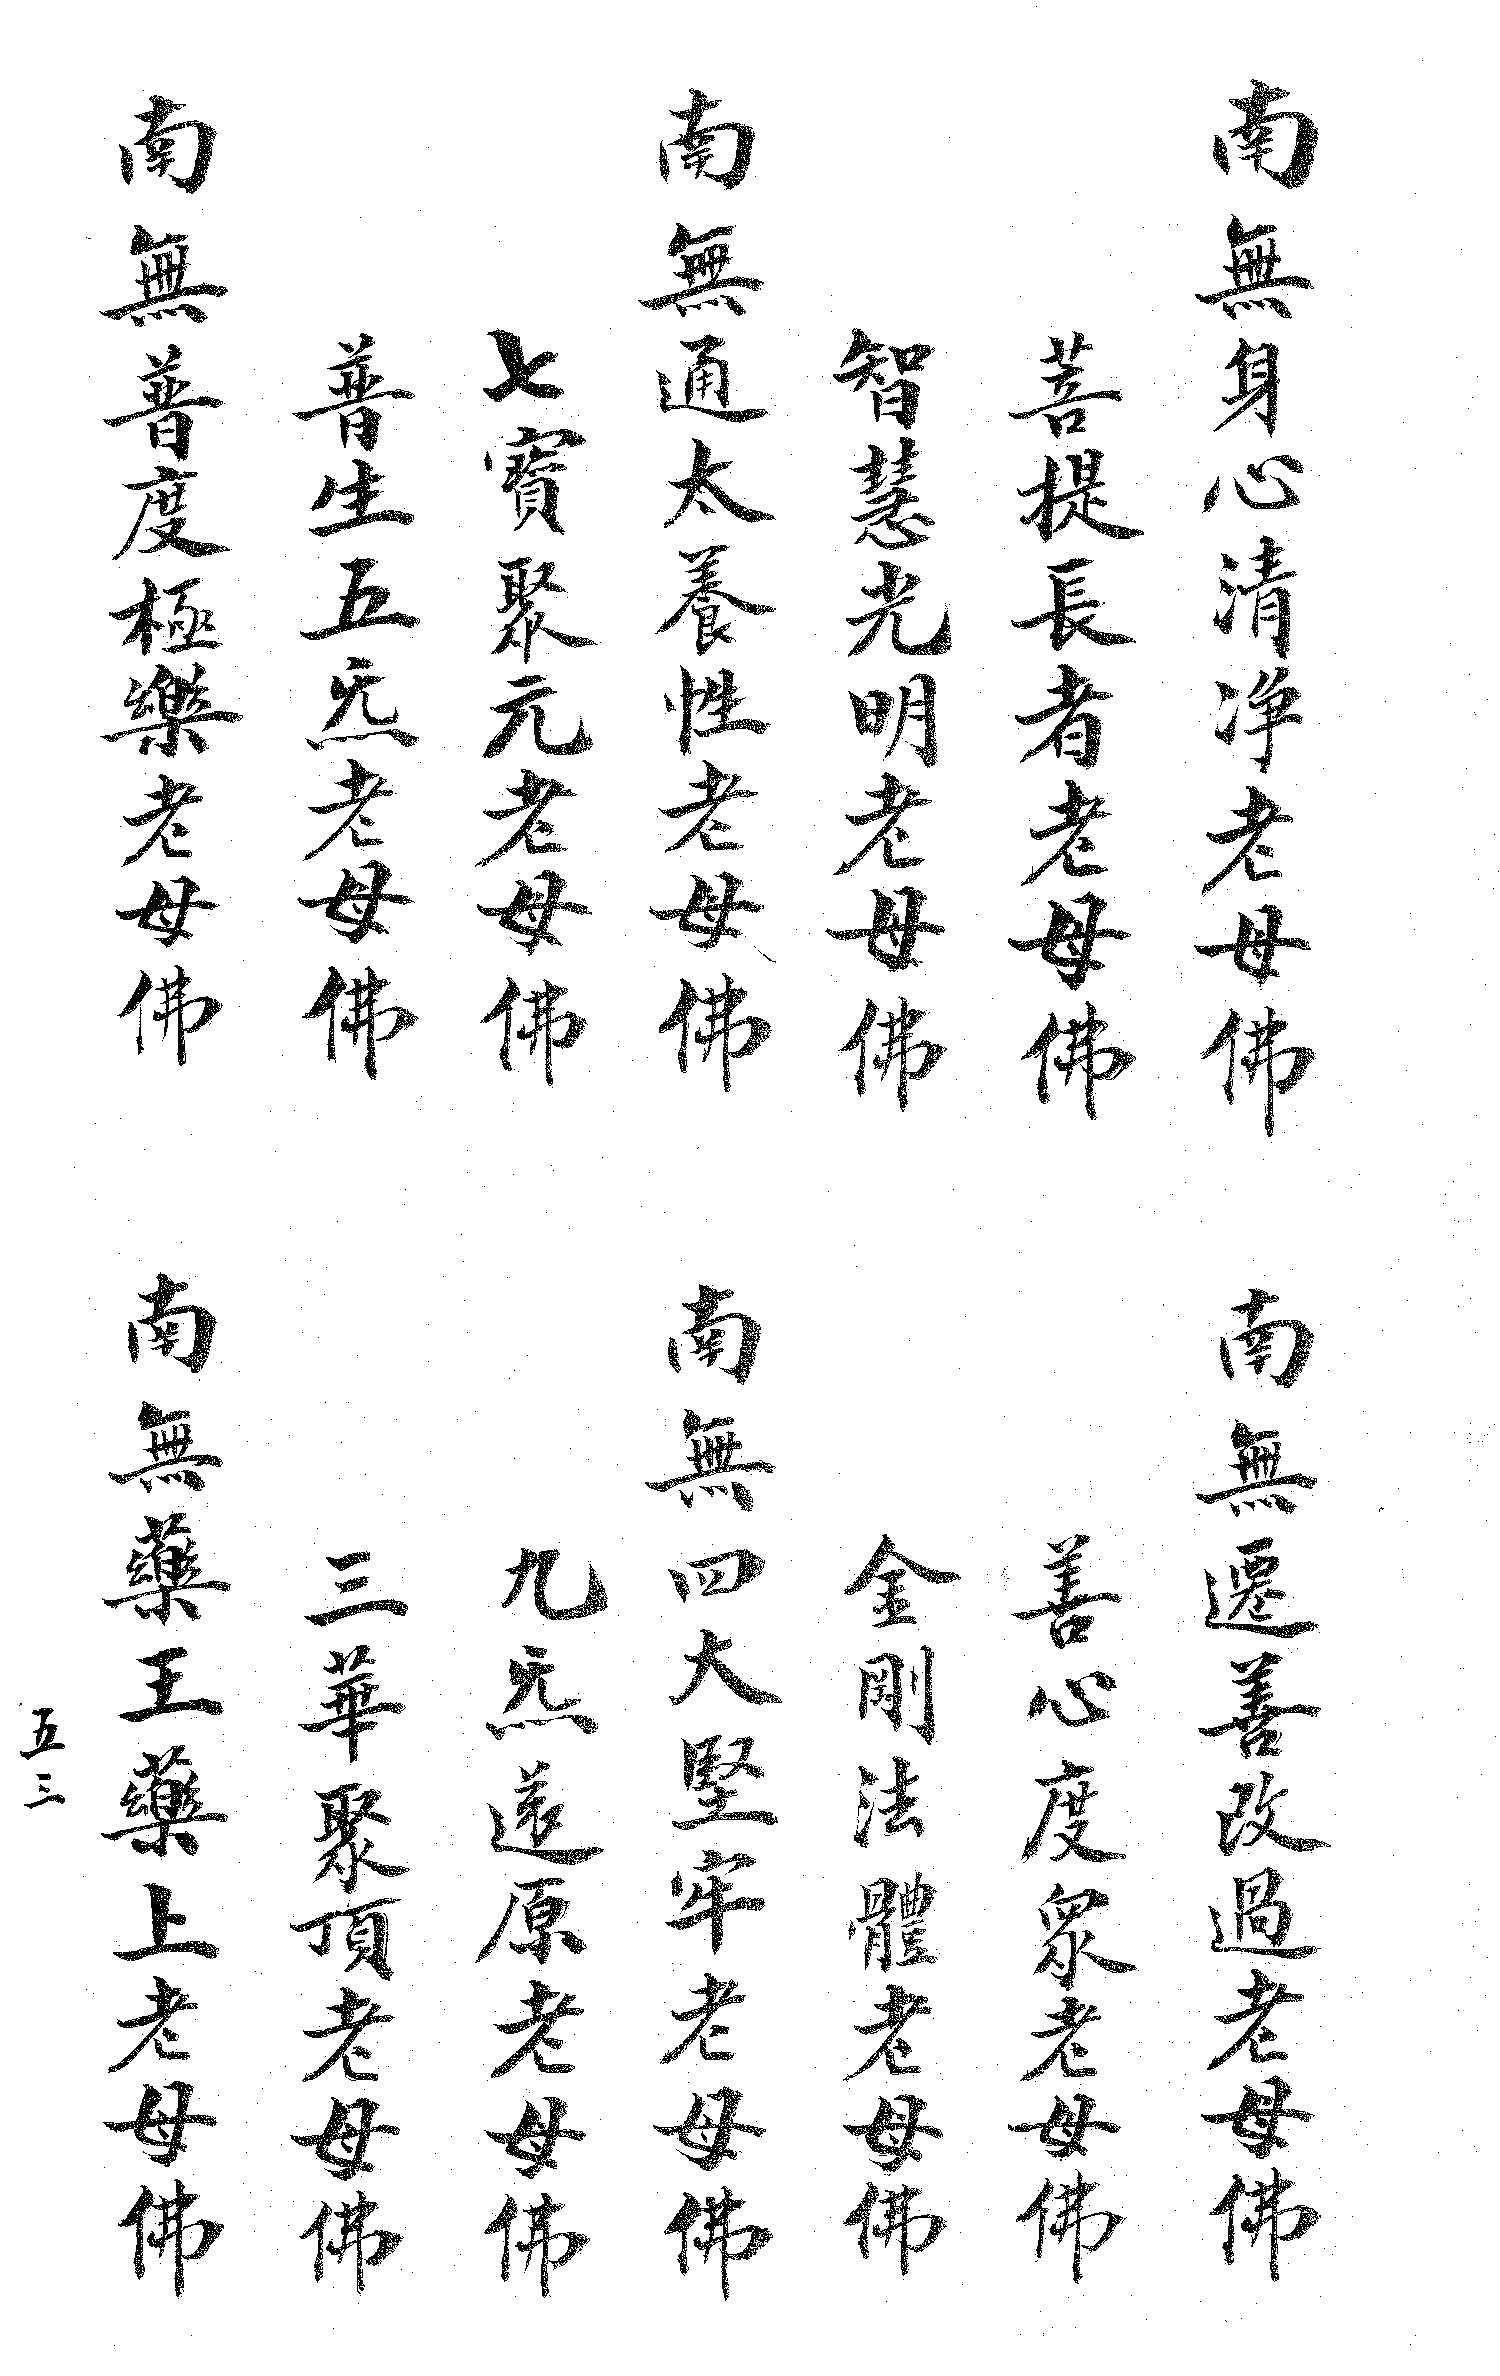 南無身心清净老母佛
南無遷善改過老母佛
菩提長者老母佛
善心度眾老母佛
智慧光明老母佛
金剛法體老母佛
南無通太養性老母佛
南無四大堅牢老母佛
七寶聚元老母佛
九炁還原老母佛
普生五炁老母佛
三華聚頂老母佛
南無普度極樂老母佛
南無藥王藥上老母佛
五三